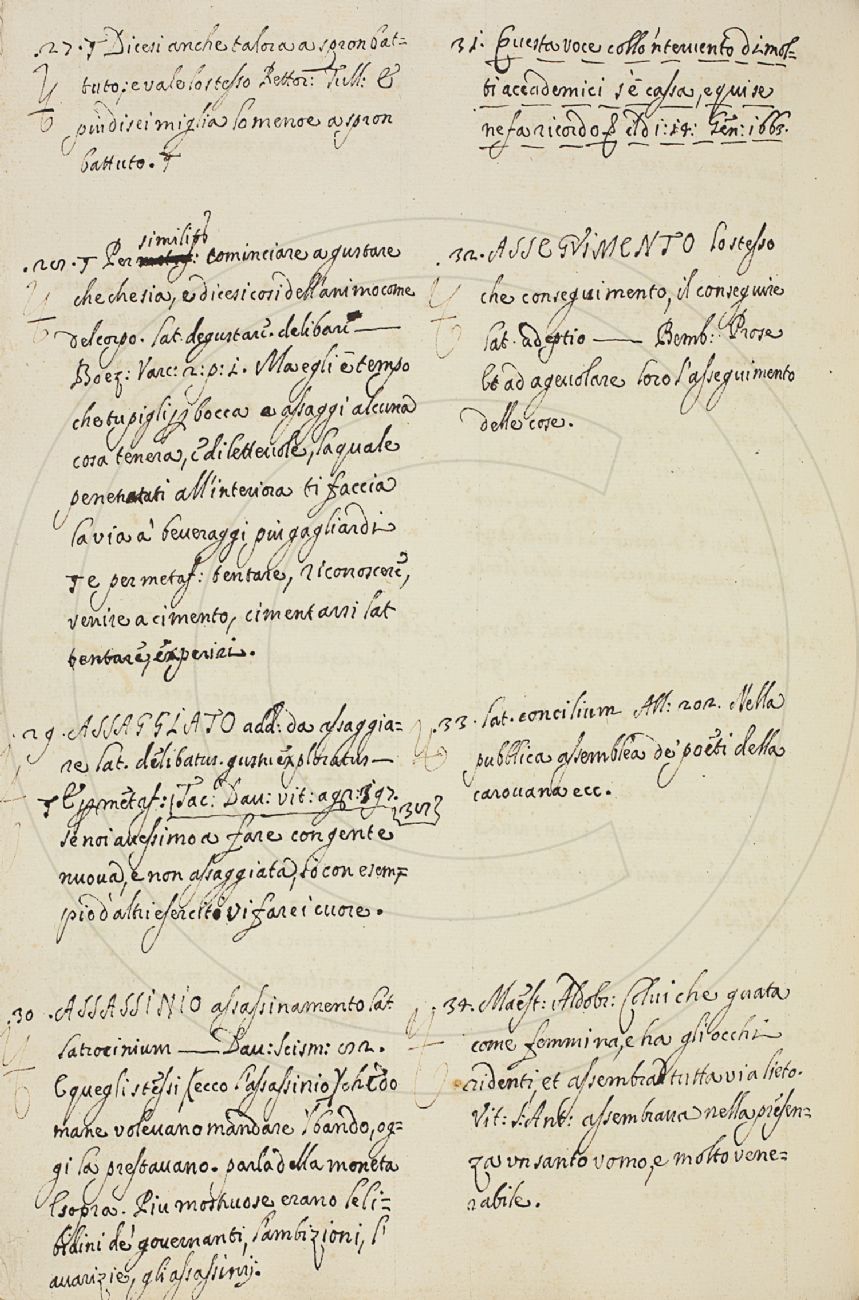 .27. † Dicesi anche talora a spron bat=
tuto; e vale lo stesso Rettor: Tull: E
piu di sei miglia lo menoe a spron
battuto. †
.28. † Per metaf: similit: cominciare a gustare
che che sia, e dicesi cosi dell'animo come
del corpo. lat. degustare. delibare —
Boez: Varc: 2: p: 1. Ma egli è tempo
che tu pigli p bocca e assaggi alcuna
cosa tenera, e dilettevole, la quale
penetrata all'interiora ti faccia
la via a' beveraggi piu gagliardi
† e per metaf: tentare, riconoscere,
venire a cimento, cimentarsi lat
tentare, experiri.
.29. ASSAGGIATO add: da assaggia=
re lat. delibatus. gustu exploratus —
† E p metaf: Tac: Dav: vit: agr: 397.
se noi avessimo a fare con gente
nuova, e non assaggiata, io con esem=
pio d'altri eserciti vi farei cuore.
.30. ASSASSINIO assassinamento lat
latrocinium — Dav: Scism: 82.
E quegli stessi, (ecco l'assassinio) che do
mane volevano mandare il bando, og=
gi la prestavano. parla della moneta
E sopra. Piu mostruose erano le li=
bidini de' governanti, l'ambizioni, l'
avarizie, gli assassinij.
31. Questa voce coll'intervento di mol=
ti accademici s'è cassa, e qui se
ne fa ricordo q. el dì: 14: Gen: 1663.
32. ASSEGVIMENTO lo stesso
che conseguimento, il conseguire
lat. adeptio — Bemb: Prose
ad agevolare loro l'asseguimento
delle cose.
33. lat. concilium All: 202. Nella
pubblica assemblea de' poeti della
carovana ecc.
34. Maest: Aldobr: Colui che guata
come femmina, e ha gli occhi
ridenti, et assembra tuttavia lieto.
Vit: S: Ant: assembrava nella presen=
za un santo vomo, e molto vene=
rabile.